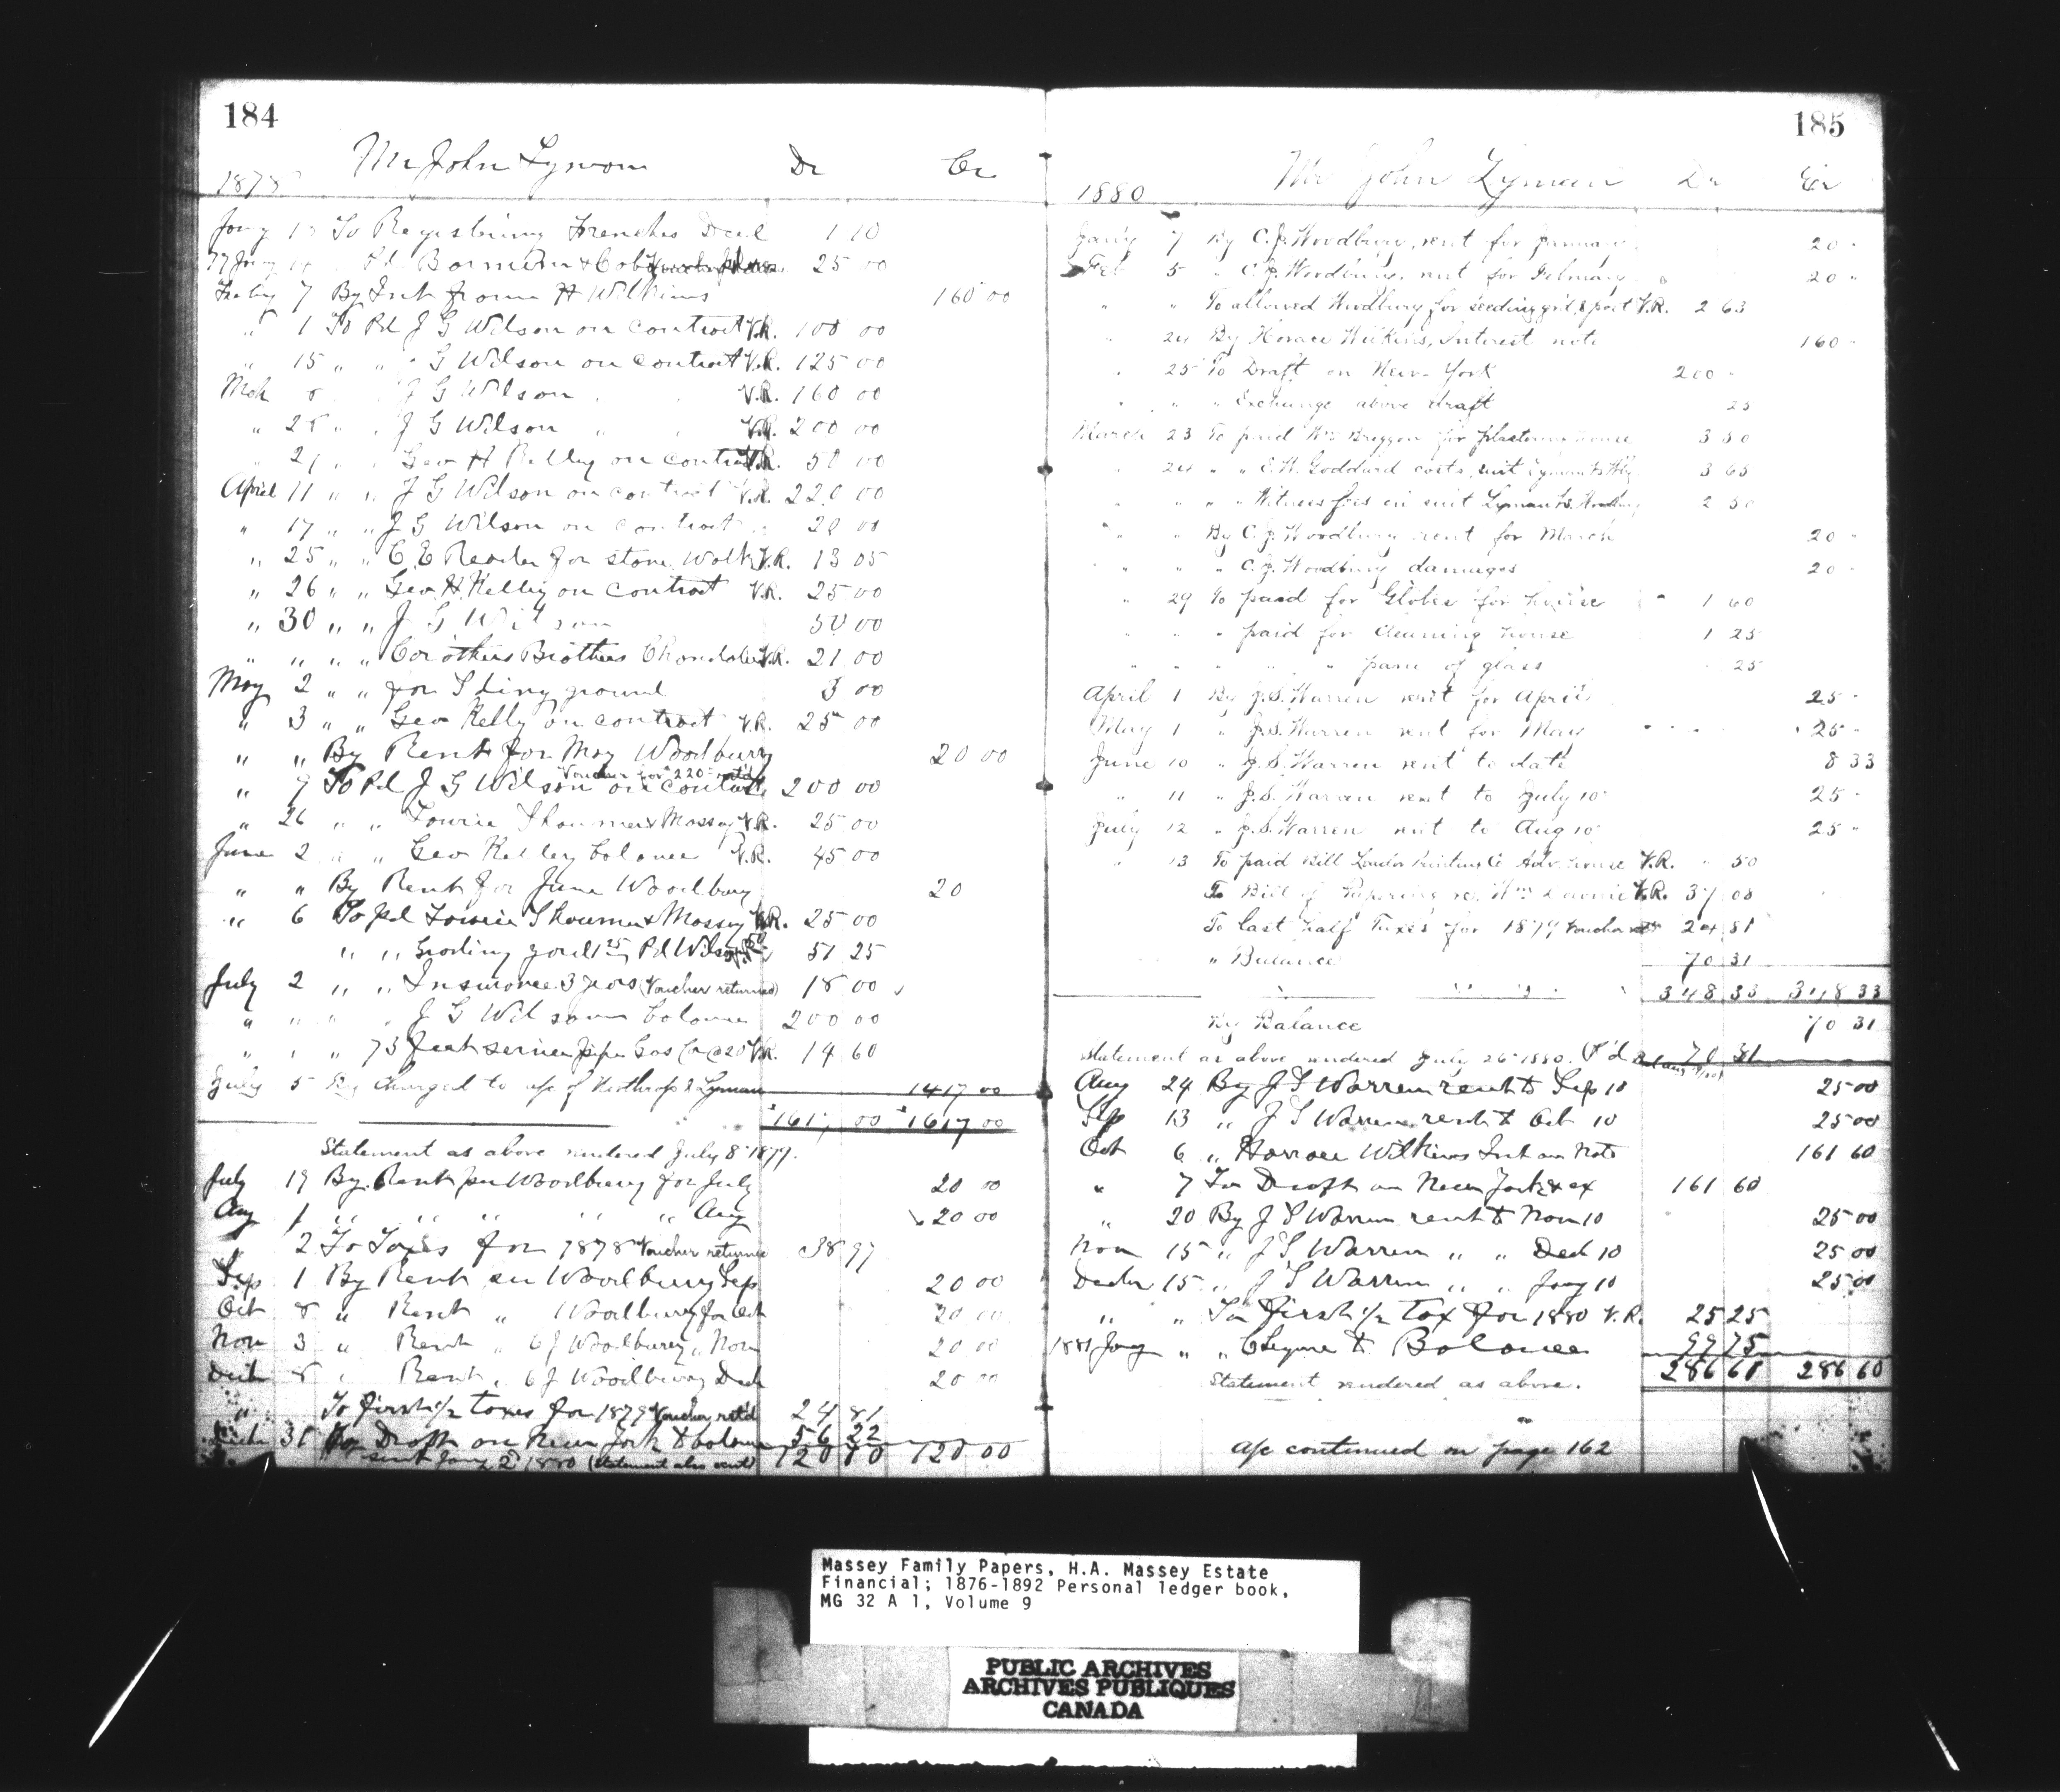 184
Mr John Lyman Dr Cr
1878
Jany To Registering Frenches Deed 1 10
Pd 25 00
Feby 7 By Int from H Wilkins 160 00
" 1 To Pd J G Wilson on contract V.R. 100 00
" 15 " " J G Wilson on contract V.R. 125 00
Mch 8 J G Wilson V.R. 160 00
" J G Wilson " V.R. 200 00
Geo H Kelley on contract V.R. 50 00
April 11 " " J G Wilson on contract V.R. 220 00
" 17 " " J G Wilson on contract 20 00
" 25 " " C E Reader for stone Walk V.R. 13 05
" 26 " " Geo H Kelley on contract V.R. 25 00
" 30 " " J G Wilson 50 00
" " " " Corothers Brothers V.R. 21 00
May 2 " " for ground 3 00
" 3 " " Geo Kelly on contract V.R. 25 00
" " By Rent for May Woodbury 20 00
Voucher for 220 - ret'd
" 7 To Pd J G Wilson on contract 200 00
" 26 " " Massey V.R. 25 00
June 2 " " Geo Kelley balance V.R. 45 00
" " By Rent for June Woodbury 20
" 6 To pd Massey V.R. 25 00
" " Grading yard 1 25 Pd Wilson 50 51 25
July 2 " " Insurance 3 years (Voucher returned) 18 00
" " " J G Wilson balance 200 00
" " " 73 feet service pipe Gas Co @ 20 V.R. 14 60
July 5 By Charged to a/c of Northrop & Lyman 1417 00
1617 00 1617 00
Statement as above rendered July 8 1879.
July 19 By Rent per Woodbury for July 20 00
Aug 1 " " " " " Aug 20 00
2 To Taxes for 1878 Voucher returned 38 97
Sep 1 By Rent Woodbury Sep 20 00
Oct 8 " Rent " Woodbury for Oct 20 00
Nov 3 " Rent " C J Woodbury " Nov 20 00
Dech 8 " Rent " C J Woodbury Dech 20 00
" To first 1/2 taxes for 1879 Voucher ret'd 24 81
Dech 31 Draft on New York to balance 56 22
sent Jany 2 1880 (statement also sent) 120 00 120 00
185
Mr John Lyman Dr Cr
1880
Jany 7 By C. J. Woodbury, rent for January 20 -
Feb 5 " C. J. Woodbury, rent for February 20 "
" " To allowed Woodbury for seeding V.R. 2 63
" 24 By Horace Wilkins, Interest note 160 -
" 25 To Draft on New-York 200 -
" " " Exchange above draft 25
March 23 To paid Wm for plastering house 3 50
" 24 " " E. W. Goddard costs, suit Lyman 3 65
" " " Witness fees in suit Lyman vs. 2 50
" " By C. J. Woodbury rent for March 20 -
" " " C. J. Woodbury damages 20 -
" 29 To paid for Globes for house 1 60
" " " paid for cleaning house 1 25
" " " " " pane of glass 25
April 1 By J. S. Warren rent for April 25 -
May 1 " J. S. Warren rent for May 25 -
June 10 " J. S. Warren rent to date 8 33
" 11 " J. S. Warren rent to July 10 25 -
July 12 " J. S. Warren rent to Aug 10 25 "
" 13 To paid Bill London Printing Co Adv. house V.R. " 50
To Bill of Papering V.R. 37 08
To last half Taxes for 1879 Voucher 24 81
" Balance 70 31
348 33 348 33
By Balance 70 31
Statement as above rendered July 26 1880. 70 31
Aug 24 By J S Warren rent to Sep 10 25 00
Sep 13 " J S Warren rent to Oct 10 25 00
Oct 6 " Horace Wilkins Int on Note 161 60
" 7 To Draft on New York & ex 161 60
" 20 By J S Warren rent to Nov 10 25 00
Nov 15 " J S Warren " " Dech 10 25 00
Dech 15 " J S Warren " " Jany 10 25 00
" " To first 1/2 tax for 1880 V.R. 25 25
1881 Jany " " to Balance 99 75
286 60 286 60
Statement rendered as above.
a/c continued on page 162
Massey Family Papers, H.A. Massey Estate
Financial; 1876-1892 Personal ledger book,
MG 32 A 1, Volume 9
PUBLIC ARCHIVES
ARCHIVES PUBLIQUES
CANADA